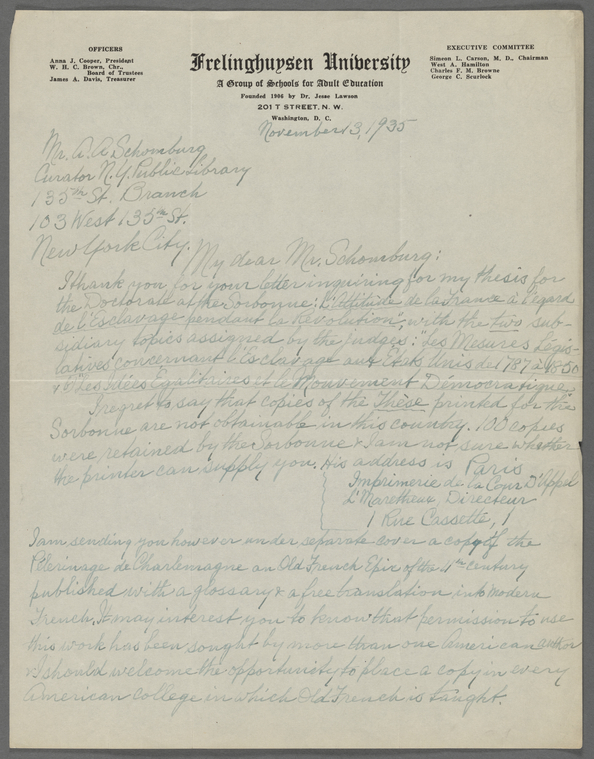 OFFICERS
Anna J. Cooper, President
W. H. C. Brown, Chr.,
Board of Trustees
James A. Davis, Treasurer
Frelinghuysen University
A Group of Schools for Adult Education
Founded 1906 by Dr. Jesse Lawson
201 T STREET, N. W.
Washington, D. C.
EXECUTIVE COMMITTEE
Simeon L. Carson, M. D., Chairman
West A. Hamilton
Charles F. M. Browne
George C. Scurlock
November 3, 1935
Mr. A. A Schomburg
Curator N. Y. Public Library
135th St. Branch
103 West 135th St.
New York City.
My dear Mr. Schomburg:
I thank you for your letter inquiring for my thesis for
the Doctorate at the Sorbonne: "L'Attitude de la France à l'égard
de l'Esclavage pendant la Revolution", with the two sub-
sidiary topics assigned by the Judges: "Les Mesures Légis-
latives concernant l'Esclavage aux Etats Unis de 1787 à 1850
& "Les Idées Egalitaires et le Mouvement Democratique"
I regret to say that copies of the Thèse printed for the
Sorbonne are not obtainable in this country. 100 copies
were retained by the Sorbonne & I am not sure whether
the printer can supply you. His address is Paris
Imprimerie de la Cour D'Appel
L. Maretheux, Directeur
1 Rue Cassette, 1
I am sending you however under separate cover a copy of the
Pelerinage de Charlemagne an Old French Epic of the 11th century
published with a glossary & a free translation into modern
French. It may interest you to know that permission to use
this work has been sought by more than one American author
& I should welcome the opportunity to place a copy in every
American College in which Old French is taught.